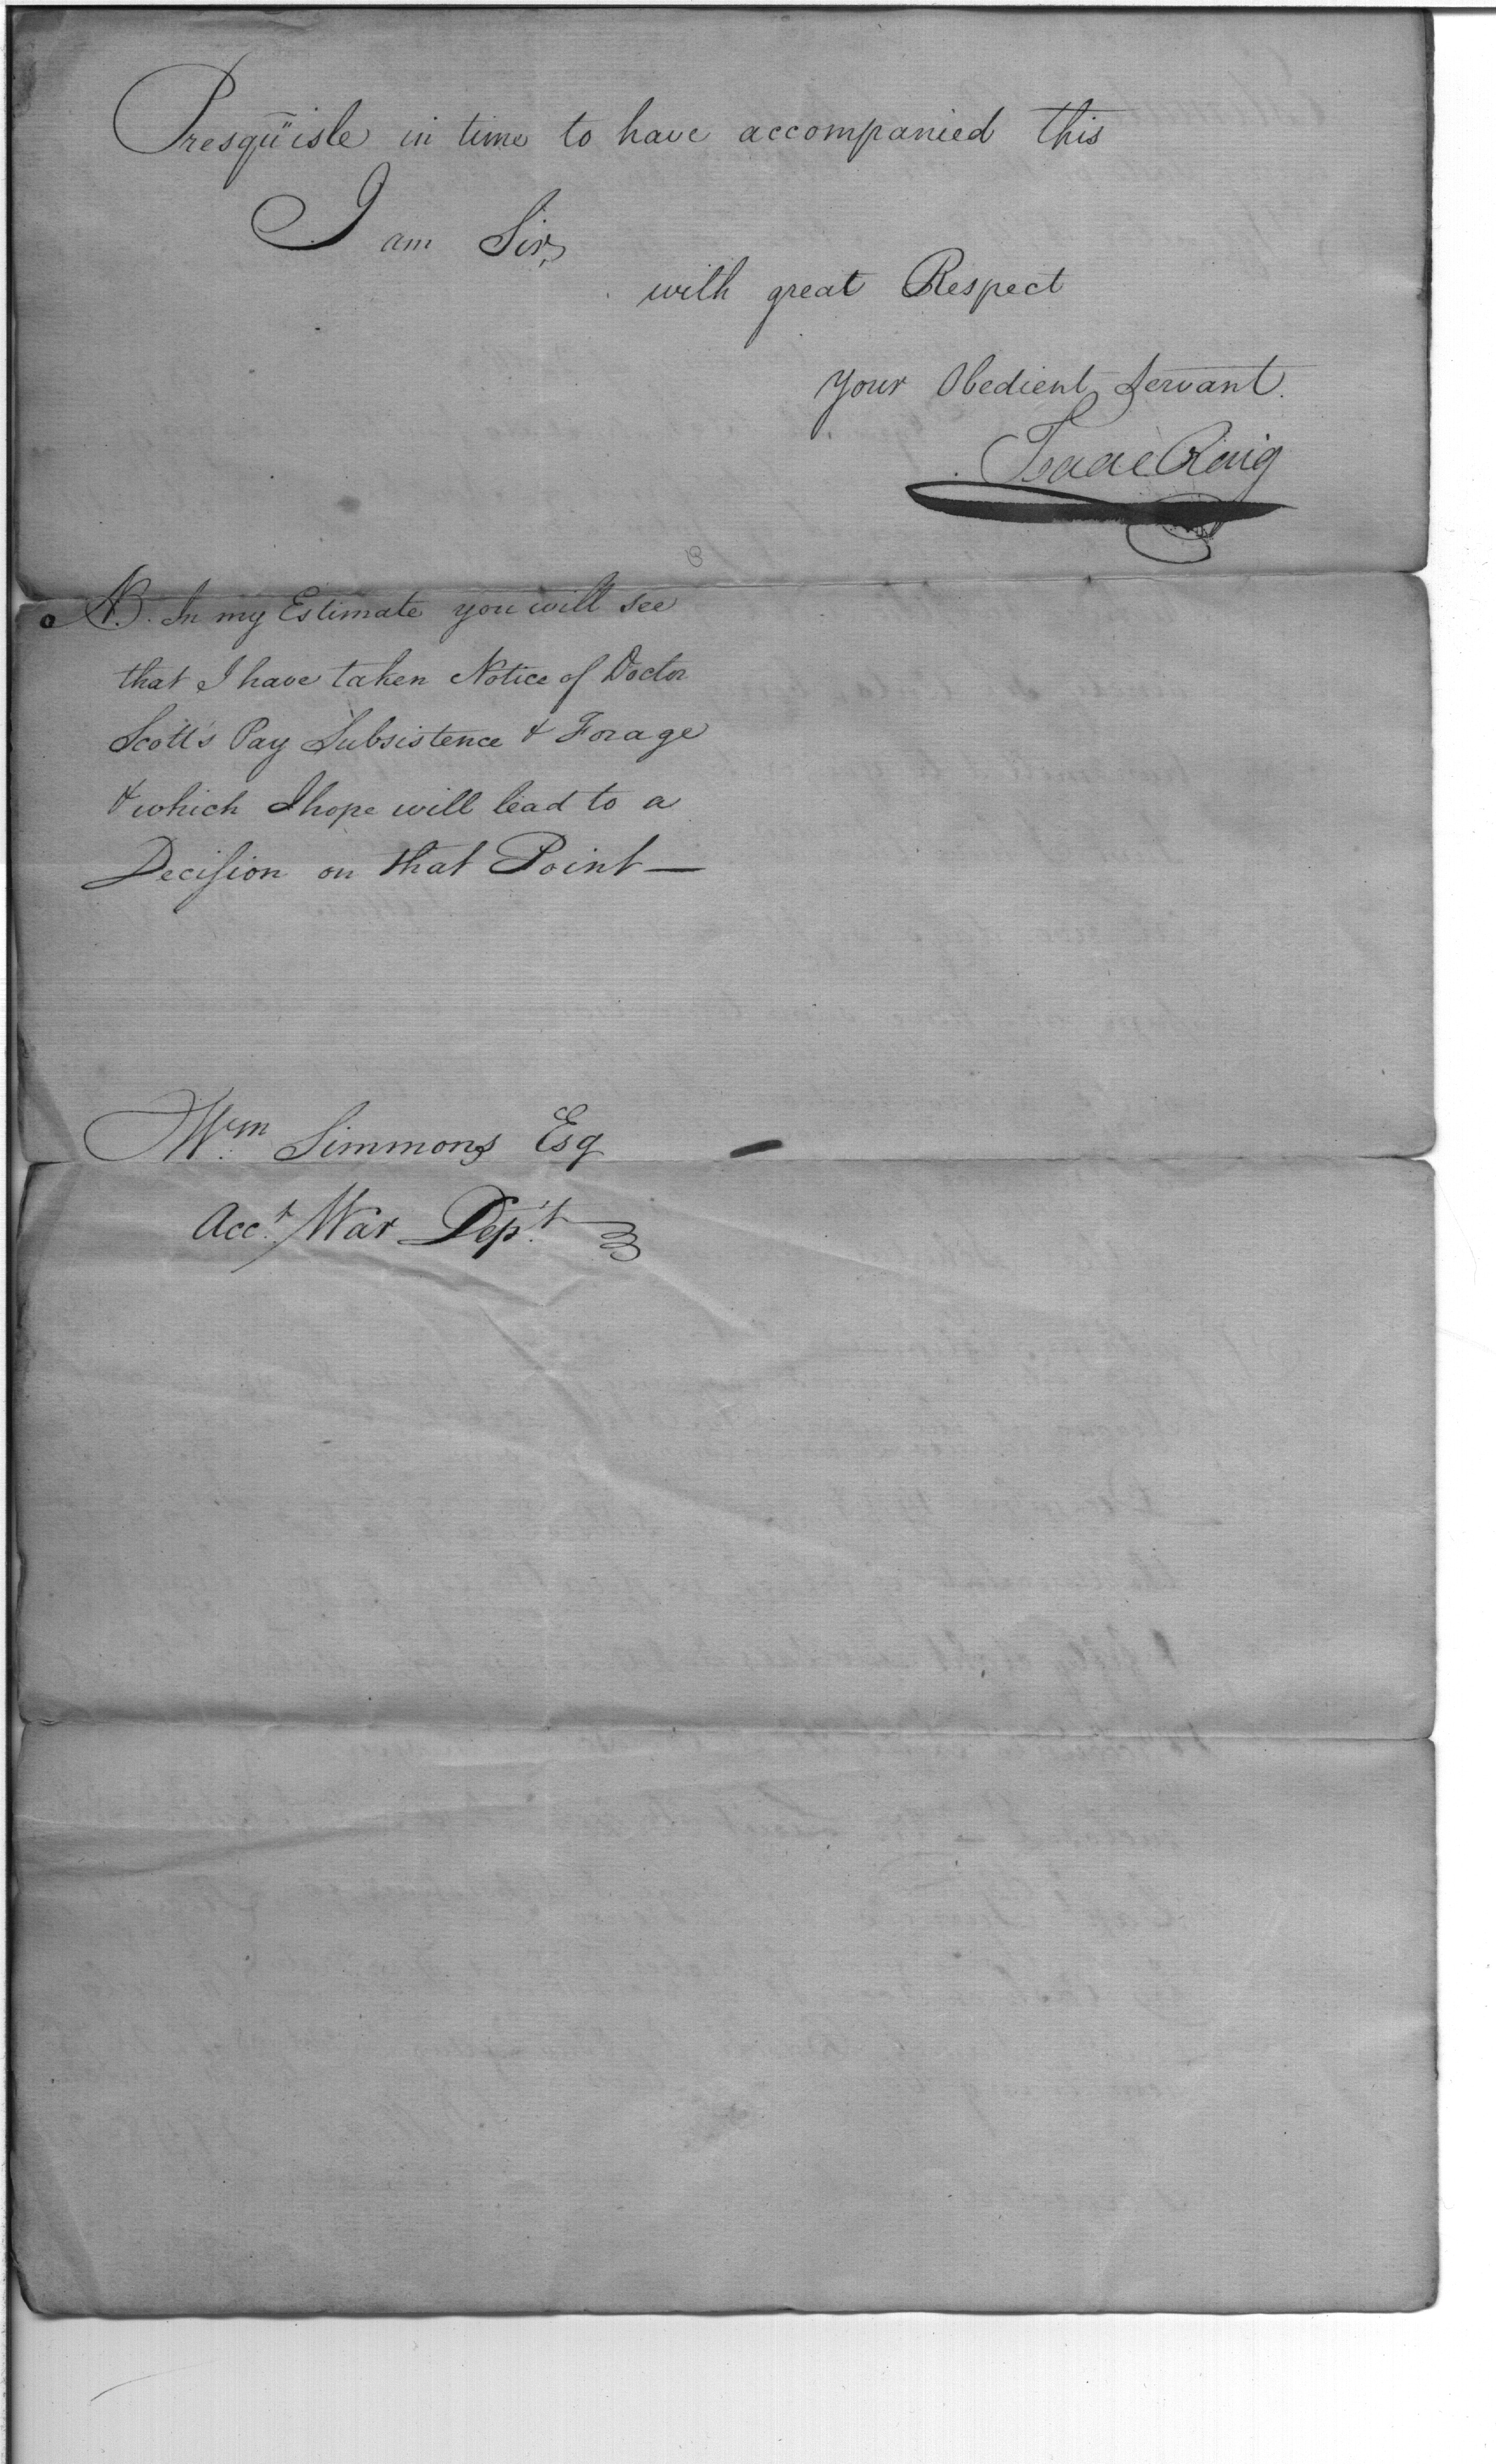 Presqu'isle in time to have accompanied this
I am Sir,
with great Respect
Your Obedient Servant.
Isaac Craig
NB. In my Estimate you will see
that I have taken Notice of Doctor
Scott's Pay Subsistence & Forage
& which I hope will lead to a
Decision on that Point—
Wm Simmons Esq
Acct. War Dept.